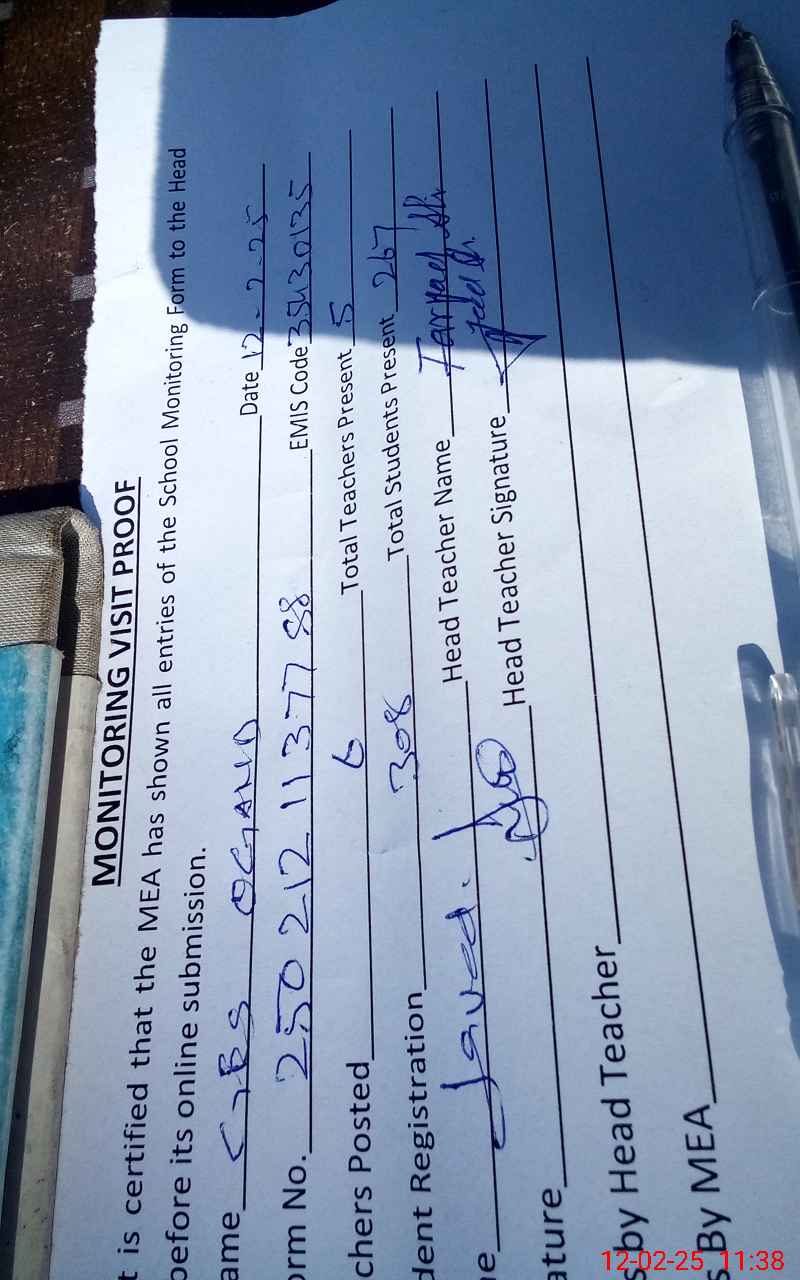 MONITORING VISIT PROOF
t is certified that the MEA has shown all entries of the School Monitoring Form to the Head
before its online submission.
ame GBS OGAND Date 12-2-25
orm No. 25021211377 88 EMIS Code 35430135
chers Posted 6 Total Teachers Present 5
dent Registration 308 Total Students Present 267
e Javed. Head Teacher Name
ature Head Teacher Signature
s by Head Teacher
s By MEA
12-02-25 11:38